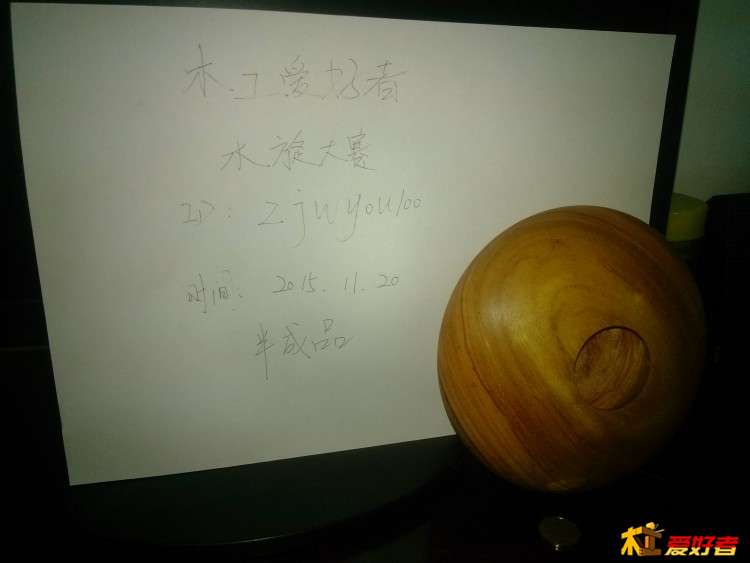 木工爱好者
木旋大赛
ID: zjwyou100
时间: 2015.11.20
半成品
木工爱好者